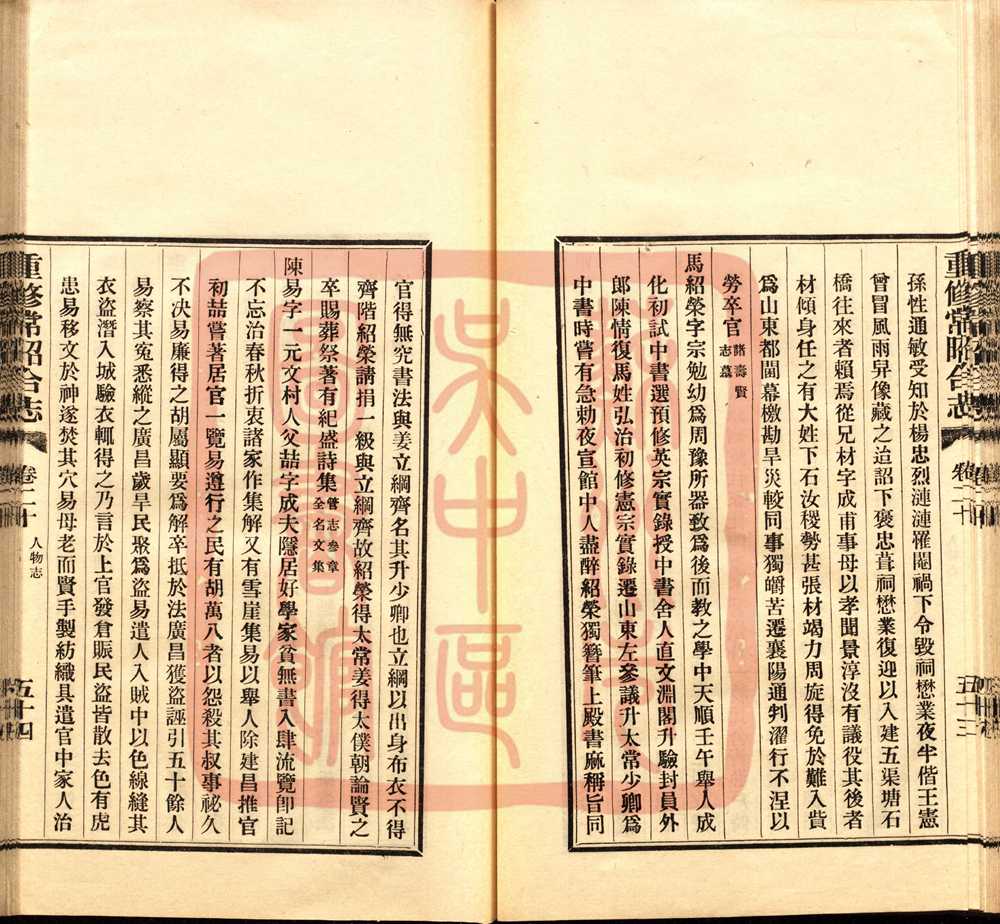 重修常昭合志
卷二十
五十三
孫性通敏受知於楊忠烈漣漣罹閹禍下令毀祠懋業夜半偕王憲
曾冒風雨舁像藏之迨詔下褒忠葺祠懋業復迎以入建五渠塘石
橋往來者賴焉從兄材字成甫事母以孝聞景淳沒有議役其後者
材傾身任之有大姓下石汝稷勢甚張材竭力周旋得免於難入貲
爲山東都閫幕檄勘旱災較同事獨皭苦遷襄陽通判濯行不涅以
勞卒官
諸壽賢
志墓
馬紹榮字宗勉幼爲周豫所器敎爲後而教之學中天順壬午舉人成
化初試中書選預修英宗實錄授中書舍人直文淵閣升驗封員外
郎陳情復馬姓弘治初修憲宗實錄遷山東左參議升太常少卿爲
中書時嘗有急勅夜宣館中人盡醉紹榮獨簪筆上殿書麻稱旨同
官得無究書法與姜立綱齊名其升少卿也立綱以出身布衣不得
齊階紹榮請捐一級與立綱齊故紹榮得太常姜得太僕朝論賢之
卒賜葬祭著有紀盛詩集
管志參章
全名文集
陳易字一元文村人父喆字成夫隱居好學家貧無書入肆流覽卽記
不忘治春秋折衷諸家作集解又有雪崖集易以舉人除建昌推官
初喆嘗著居官一覽易遵行之民有胡萬八者以怨殺其叔事祕久
不决易廉得之胡屬顯要爲解卒抵於法廣昌獲盜誣引五十餘人
易察其寃悉縱之廣昌歲旱民聚爲盜易遣人入賊中以色線縫其
衣盜潛入城驗衣輒得之乃言於上官發倉賑民盜皆散去邑有虎
患易移文於神遂焚其穴易母老而賢手製紡織具遣官中家人治
重修常昭合志
卷二十
人物志
五十四
吳中區
圖書館